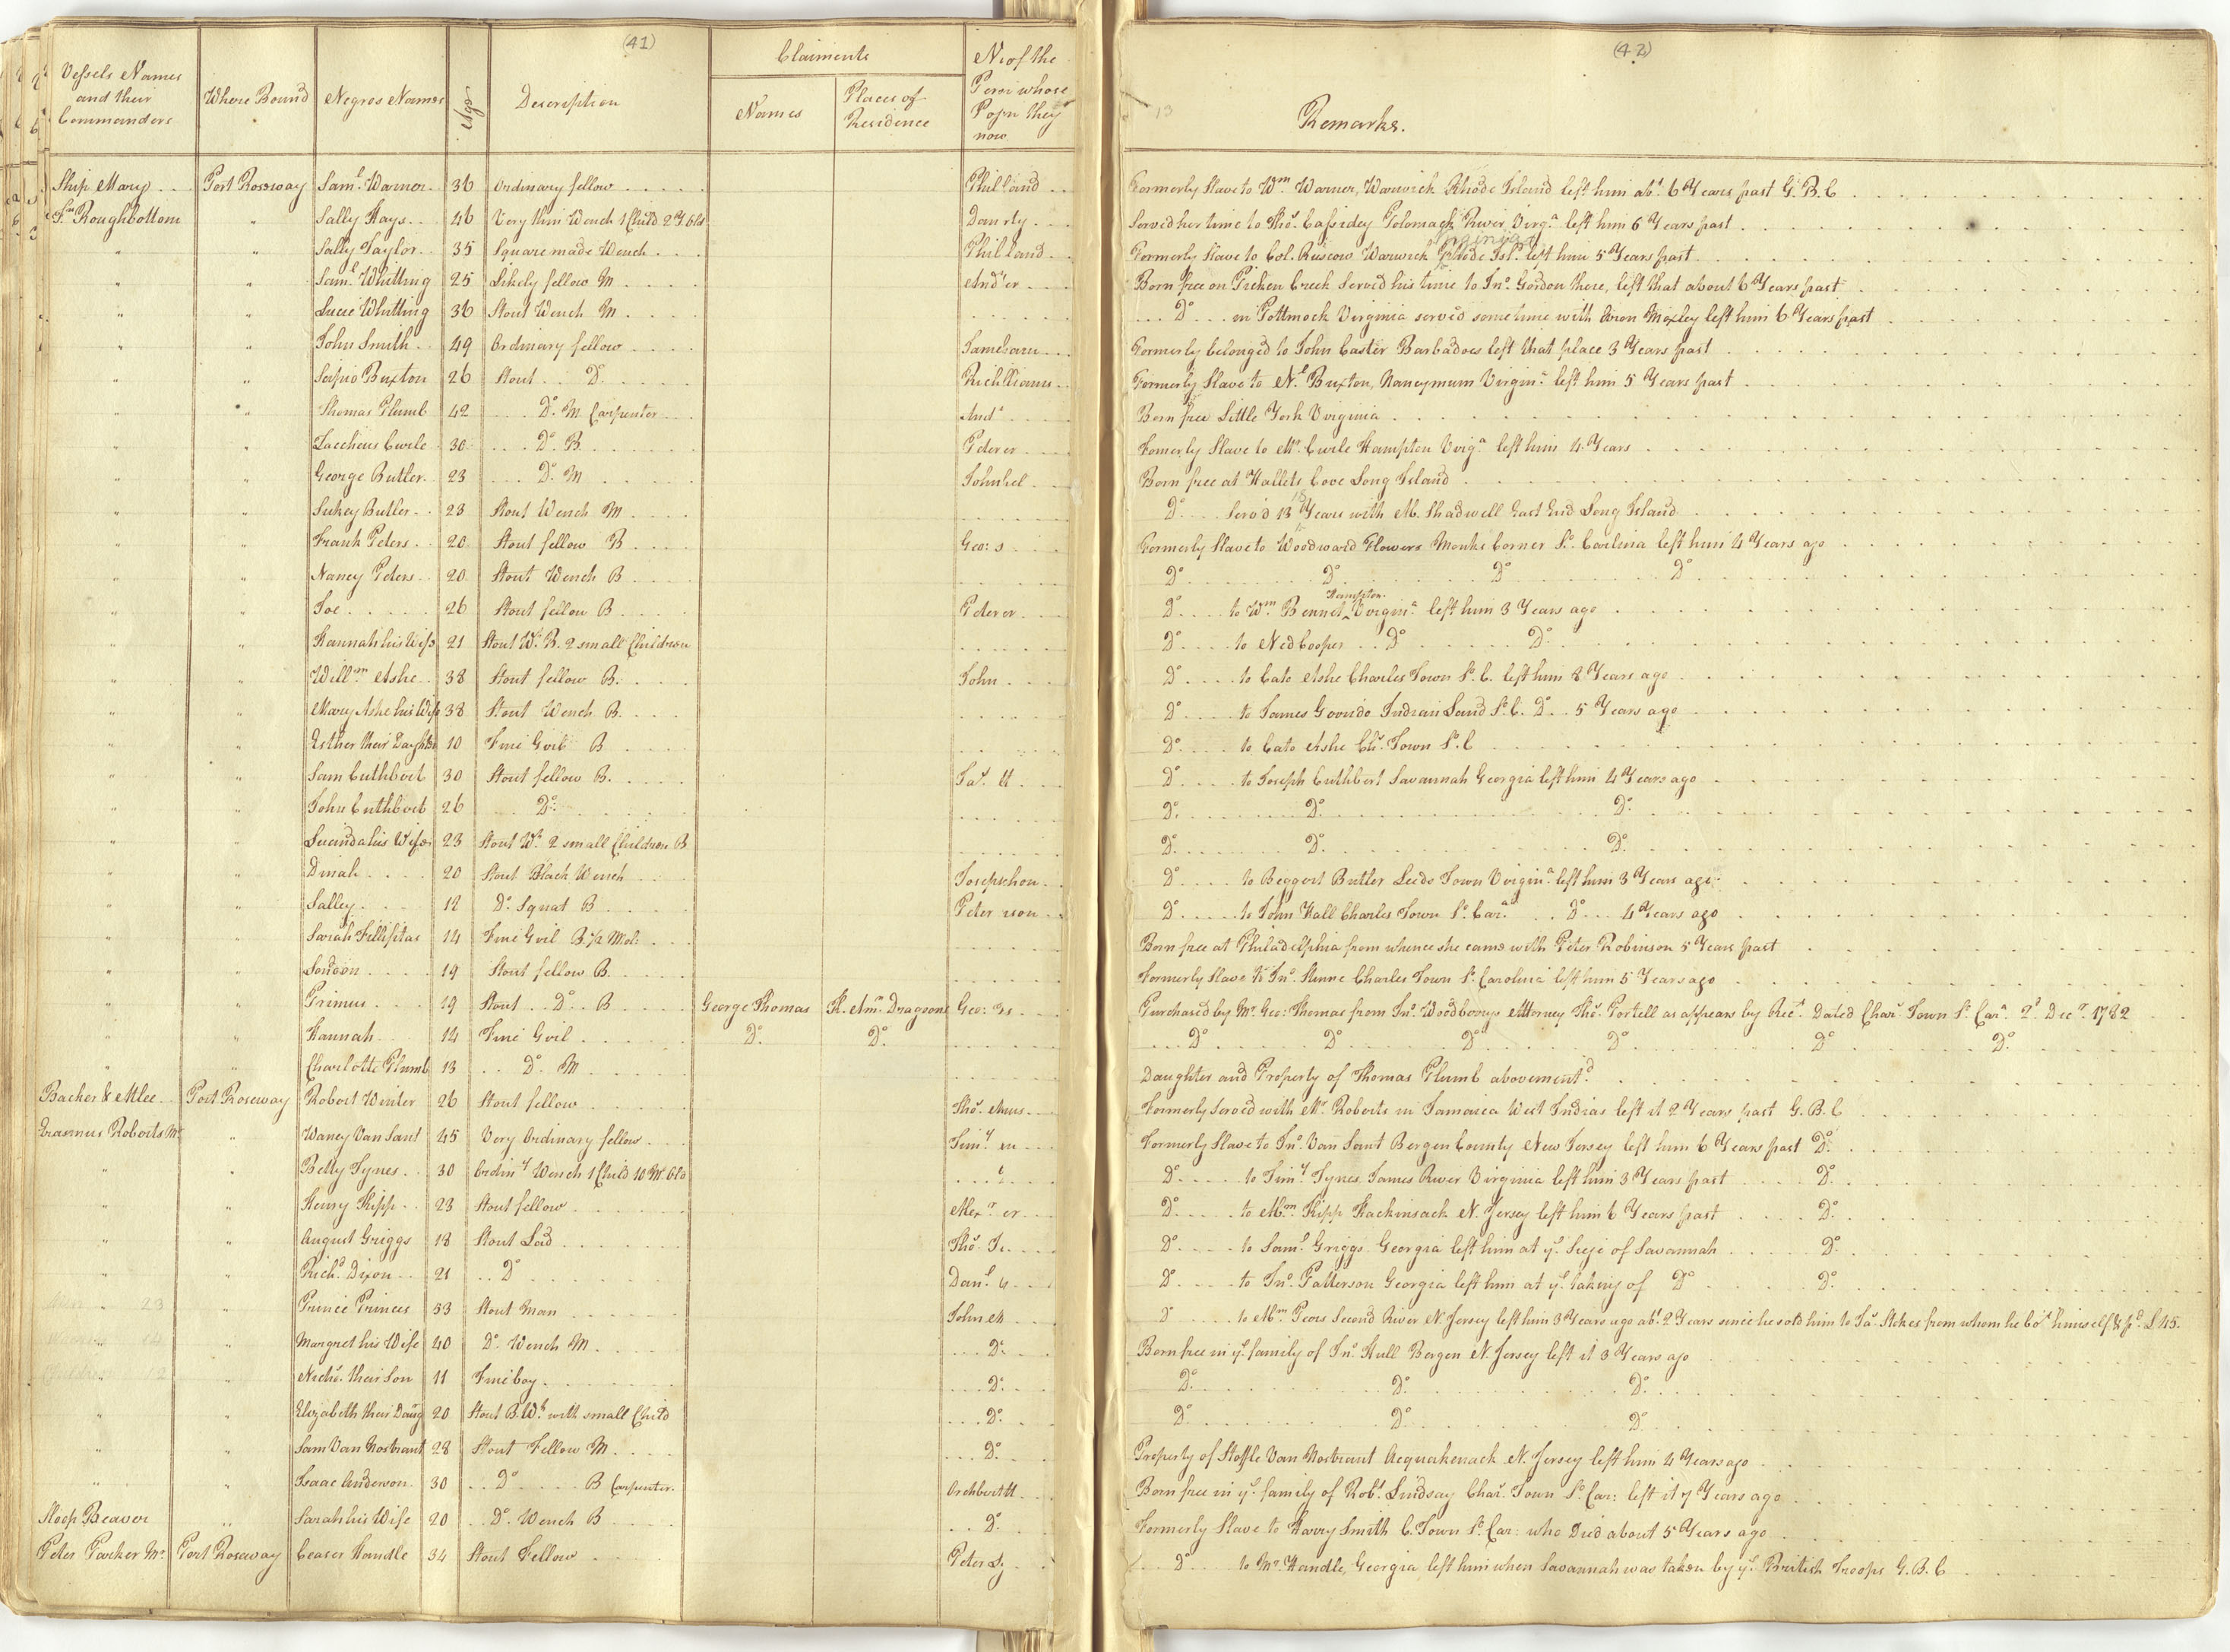 (41)
Vessels Names and their Commanders | Where Bound | Negros Names | Age | Description | Claiments | Names | Places of Residence | Ns of the whose they now
Ship Mary | Port Roseway | Saml. Warner | 36 | Ordinary fellow | Phil land
Jno Roughbottom | " | Sally Hays | 46 | Very thin Wench 1 Child 2 Y. Old | Dan rty
" | " | Sally Taylor | 35 | Square made Wench | Phil land
" | " | Saml. Whitting | 25 | Likely fellow M | And er
" | " | Lucie Whitting | 36 | Stout Wench M
" | " | John Smith | 49 | Ordinary fellow
" | " | Scipio Buxton | 26 | Stout Do.
" | " | Thomas Plumb | 42 | Do. M Carpenter | And
" | " | Zaccheus Curle | 30 | Do. B | Peter er
" | " | George Butler | 23 | Do. M | John
" | " | Sukey Butler | 23 | Stout Wench M
" | " | Frank Peters | 20 | Stout fellow B | Geo: s
" | " | Nancy Peters | 20 | Stout Wench B
" | " | Joe | 26 | Stout fellow B | Peter er
" | " | Hannah his Wife | 21 | Stout Wh. B. 2 small Children
" | " | Willm. Ashe | 38 | Stout fellow B. | John
" | " | Mary Ashe his Wife | 38 | Stout Wench B.
" | " | Esther their Daughter | 10 | Fine Girl B
" | " | Sam Cuthbert | 30 | Stout fellow B. | Jas.
" | " | John Cuthbert | 26 | Do.
" | " | Lucinda his Wife | 23 | Stout Wh. 2 small Children B
" | " | Dinah | 20 | Stout Black Wench | Joseph hon
" | " | Salley | 12 | Do. Squat B | Peter son
" | " | Sarah Fillis | 14 | Fine Girl B. 1/2 Mo:
" | " | London | 19 | Stout fellow B.
" | " | Primus | 19 | Stout Do. B | George Thomas | K. Amn. Dragoons | Geo: as
" | " | Hannah | 14 | Fine Girl | Do. | Do.
" | " | Charlotte Plumb | 13 | Do. M
Backer & Mlee | Port Roseway | Robert Winter | 26 | Stout fellow | Thos.
Erasmus Roberts Mr. | " | Waney Van Sant | 45 | Very Ordinary fellow | Timy. m
" | " | Betty Tynes | 30 | Ordiny. Wench 1 Child 10 M. Old
" | " | Henry Kipp | 23 | Stout fellow | Alexr. er
" | " | August Griggs | 18 | Stout Lad | Thos.
" | " | Richd. Dixon | 21 | Do | Danl.
Men 23 | " | Prince Princes | 53 | Stout Man | John
14 | " | Margret his Wife | 40 | Do. Wench M | Do.
Children 12 | " | Nichs. their Son | 11 | Fine boy | Do.
" | " | Elizabeth their Daug | 20 | Stout B. Wh. with small Child | Do.
" | " | Sam Van Nostrant | 28 | Stout Fellow M | Do.
" | " | Isaac Anderson | 30 | Do B Carpenter
Sloop Beaver | " | Sarah his Wife | 20 | Do. Wench B | Do.
Peter Parker Mr. | Port Roseway | Ceaser Handle | 34 | Stout Fellow | Peter
(42)
13
Remarks.
Formerly Slave to Wm. Warner, Warwick Rhode Island left him abt. 6 Years past G. B. C
Served her time to Thos. Cassidey Potomack River, Virga. left him 6 Years past
Virginia
Formerly Slave to Col. Ruscow Warwick Rhode Isl. left him 5 Years past
Born free on Picken Creek served his time to Jno. Gordon there, left that about 6 Years past
Do in Pottmock Virginia served some time with Aron Moxley left him 6 Years past
Formerly belonged to John Caster Barbadoes left that place 3 Years past
Formerly Slave to Nl. Buxton, Nancymum Virgina. left him 5 Years past
Born free Little York Virginia
Formerly Slave to Mr. Curle Hampton Virga. left him 4 Years
Born free at Hallets Cove Long Island
Do. Serv'd 18 Years with M. Shadwell East End Long Island
Formerly Slave to Woodward Flowers Monks Corner So. Carolina left him 4 Years ago
Do. Do. Do Do
Do. to Wm. Bennet Hampton Virgina. left him 3 Years ago
Do. to Ned Cooper Do Do.
Do. to Cato Ashe Charles Town So. C. left him 8 Years ago
Do. to James Goordo Indian Land So. C. Do. 5 Years ago
Do. to Cato Ashe Chs. Town So. C
Do. to Joseph Cuthbert Savannah Georgia left him 4 Years ago
Do. Do. Do.
Do. Do. Do.
Do. to Beggert Butler Leeds Town Virgina. left him 3 Years ago
Do. to John Hall Charles Town So. Cara. Do. 4 Years ago
Born free at Philadelphia from whence she came with Peter Robinson 5 Years past
Formerly Slave to Jno. Hunne Charles Town So. Carolina left him 5 Years ago
Purchased by Mr. Geo: Thomas from Jno. Woodberrys Attorney Thos. Portell as appears by Rect. Dated Chas. Town So. Cara. 2d. Decr. 1782
Do. Do. Do. Do. Do Do.
Daughter and Property of Thomas Plumb abovementd.
Formerly served with Mr. Roberts in Jamaica West Indias left it 2 Years past G. B. C
Formerly Slave to Jno. Van Sant Bergen County New Jersey left him 6 Years past Do.
Do to Timy. Tynes, James River Virginia left him 3 Years past Do.
Do. to Mm. Kipp Hackinsack N. Jersey left him 6 Years past Do.
Do. to Saml. Griggs Georgia left him at ye. Siege of Savannah Do.
Do. to Jno. Patterson Georgia left him at ye. taking of Do Do.
Do to Mm. Second River N. Jersey left him 3 Years ago abt. 2 Years since he sold him to Ja. Stokes from whom he bot. himself & pd. £45.
Born free in ye. family of Jno. Hull Bergen N. Jersey left it 3 Years ago
Do. Do. Do.
Do. Do. Do.
Property of Stoffle Van Nostrant Acquakenack N. Jersey left him 4 Years ago
Born free in ye. family of Robt. Lindsay Chas. Town So. Car: left it 7 Years ago
Formerly Slave to Harry Smith C. Town So. Car: who Died about 5 Years ago
Do to Mr. Handle, Georgia left him when Savannah was taken by ye. British Troops G. B. C